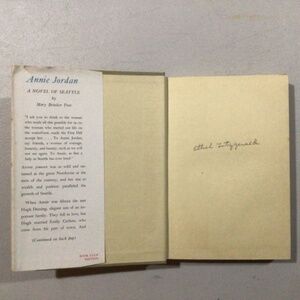 Annie Jordan
A NOVEL OF SEATTLE
by
Mary Brinker Post
"I ask you to drink to the woman
who made all this possible for us—to
the woman who started our life on
the waterfront, made the First Hill
accept her. . . . To Annie Jordan,
my friends, a woman of courage,
honesty, and beauty, such as we will
not see again. To Annie, so that a
lady in Seattle has ever lived."
ANNIE JORDAN was as wild and un-
tamed as the great Northwest at the
turn of the century, and her rise to
wealth and position paralleled the
growth of Seattle.
When Annie was fifteen she met
Hugh Deming, elegant son of an im-
portant family. They fell in love, but
Hugh married Emily Carlson, who came
from his part of town. And
(Continued on back flap)
BOOK CLUB
EDITION
Ethel Fitzgerald